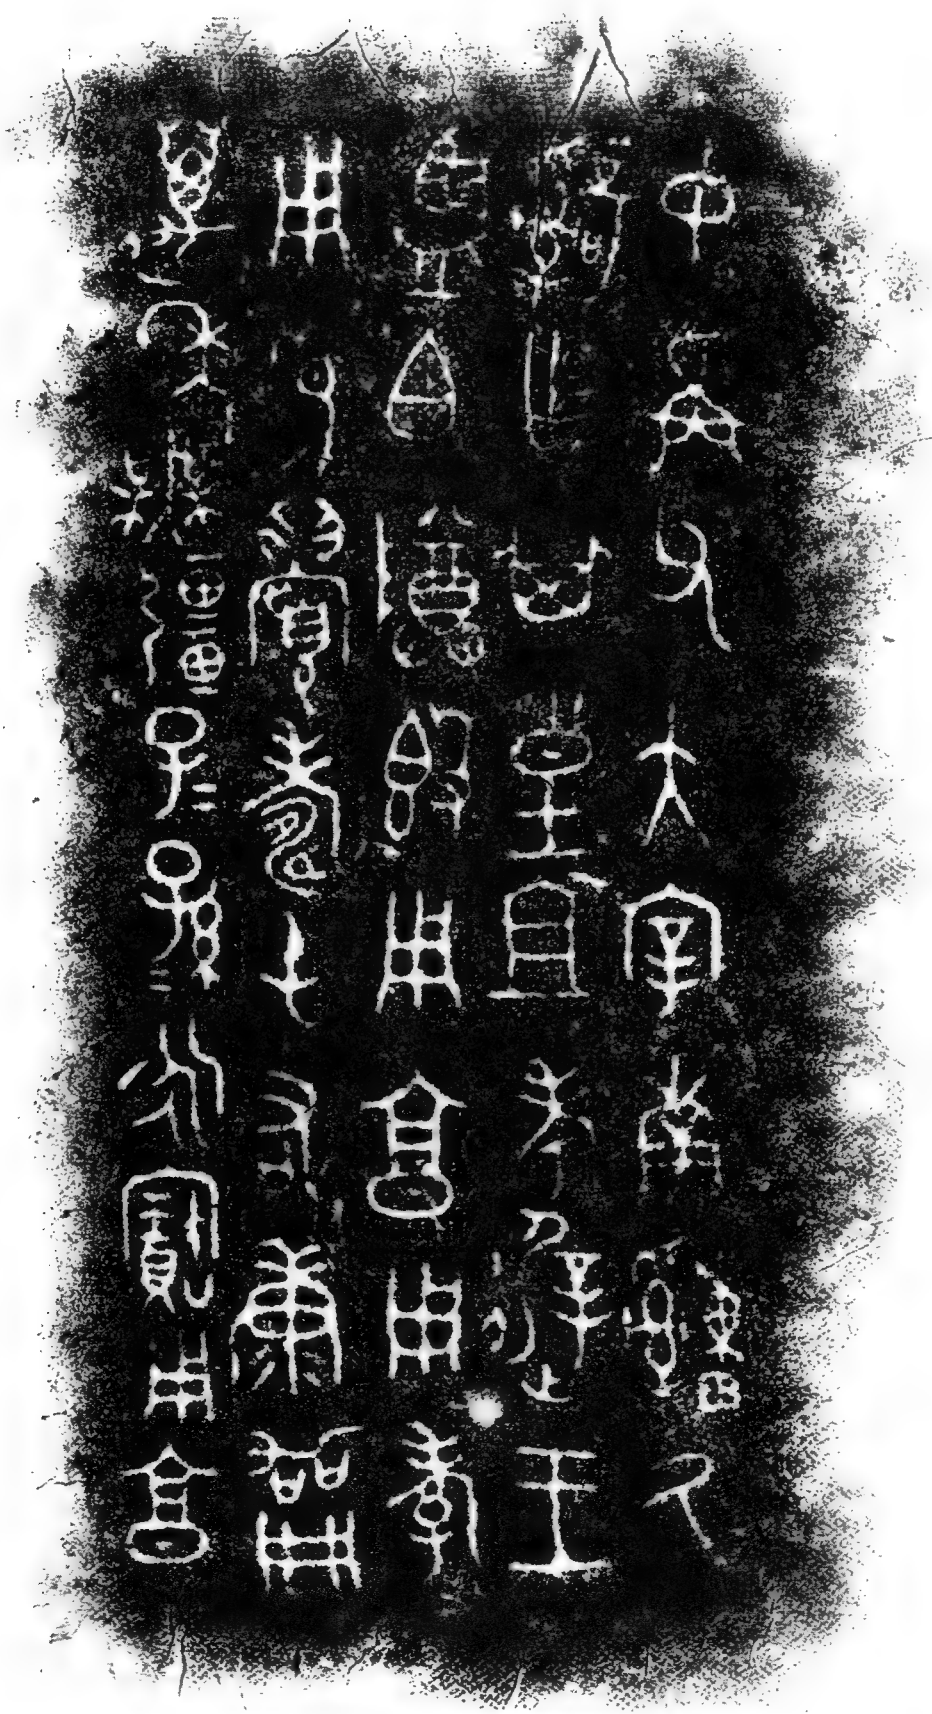 中爯父大宰南𤕌氒
𤔲乍其皇且考遟王
監白尊𣪘用享用孝
用易眉壽屯右康
萬年無疆子=孫=永寶用享